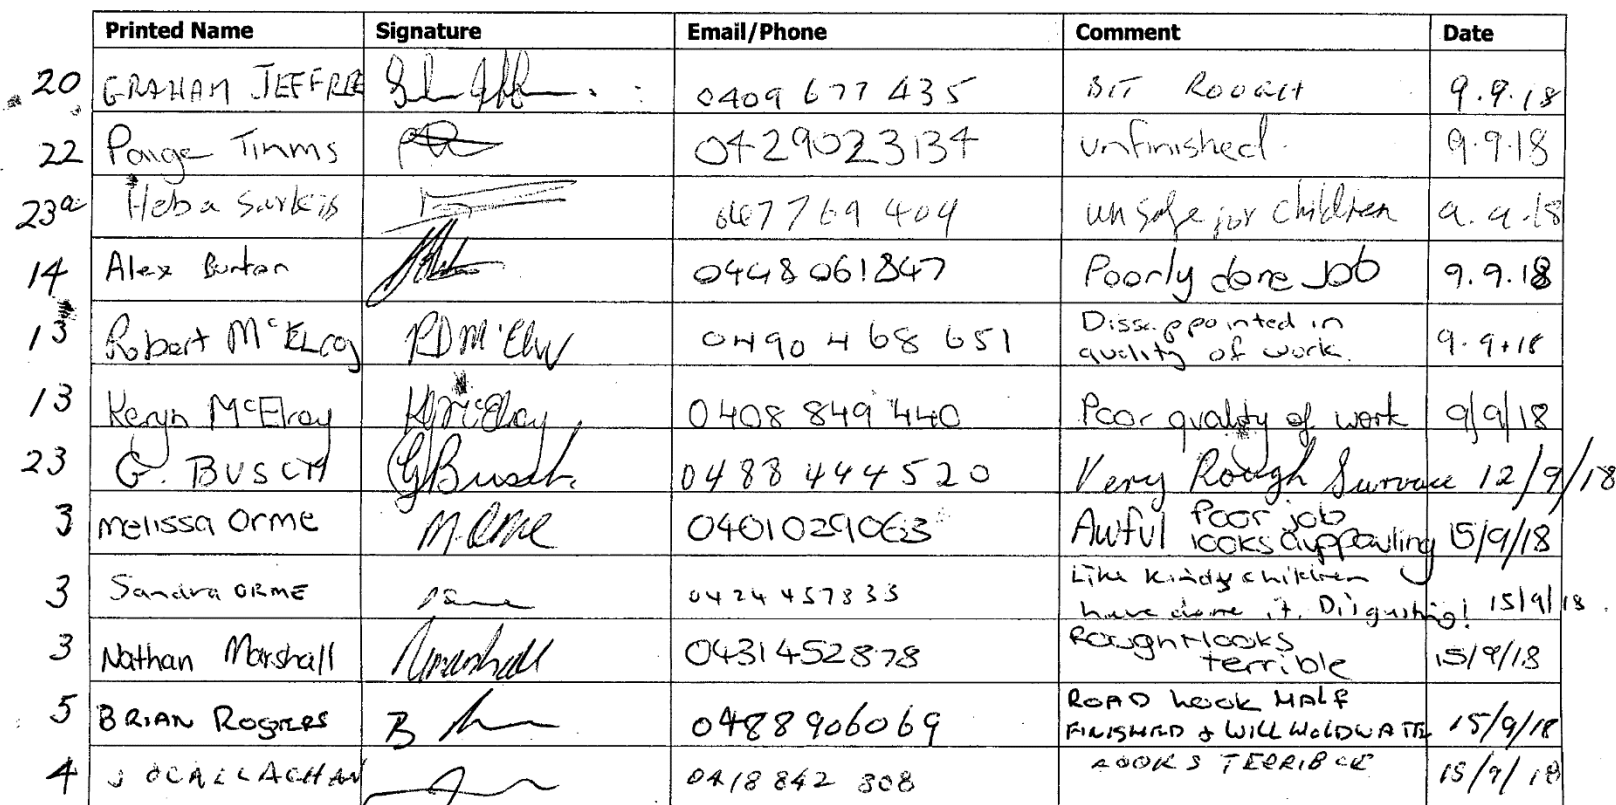 Printed Name Signature Email/Phone Comment Date
20 GRAHAM JEFFREE 0409 677 435 BIT ROUGH 9.9.18
22 Paige Timms 0429023134 unfinished. 9.9.18
23a Heba Sarkis 0467769404 unsafe for children 9.9.18
14 Alex Burton 0448061847 Poorly done Job 9.9.18
13 Robert McElroy RDMcElroy 0490 468 651 Dissappointed in
quality of work. 9.9.18
13 Keryn McElroy KMcElroy 0408 849 440 Poor quality of work 9/9/18
23 G. BUSCH GBusch. 0488 444 520 Very Rough Survace 12/9/18
3 Melissa Orme M.Orme 0401029063 Awful Poor job
looks appauling 15/9/18
3 Sandra ORME 0424 457835 Like Kindy children
have done it. Disgusting! 15/9/18.
3 Nathan Marshall Nmarshall 0431452878 Rough + looks
terrible 15/9/18
5 BRIAN ROGERS B 0488906069 ROAD LOOK HALF
FINISHED & WILL HOLD WATER 15/9/18
4 J OCALLAGHAN 0418 842 808 LOOKS TERRIBLE 15/9/18